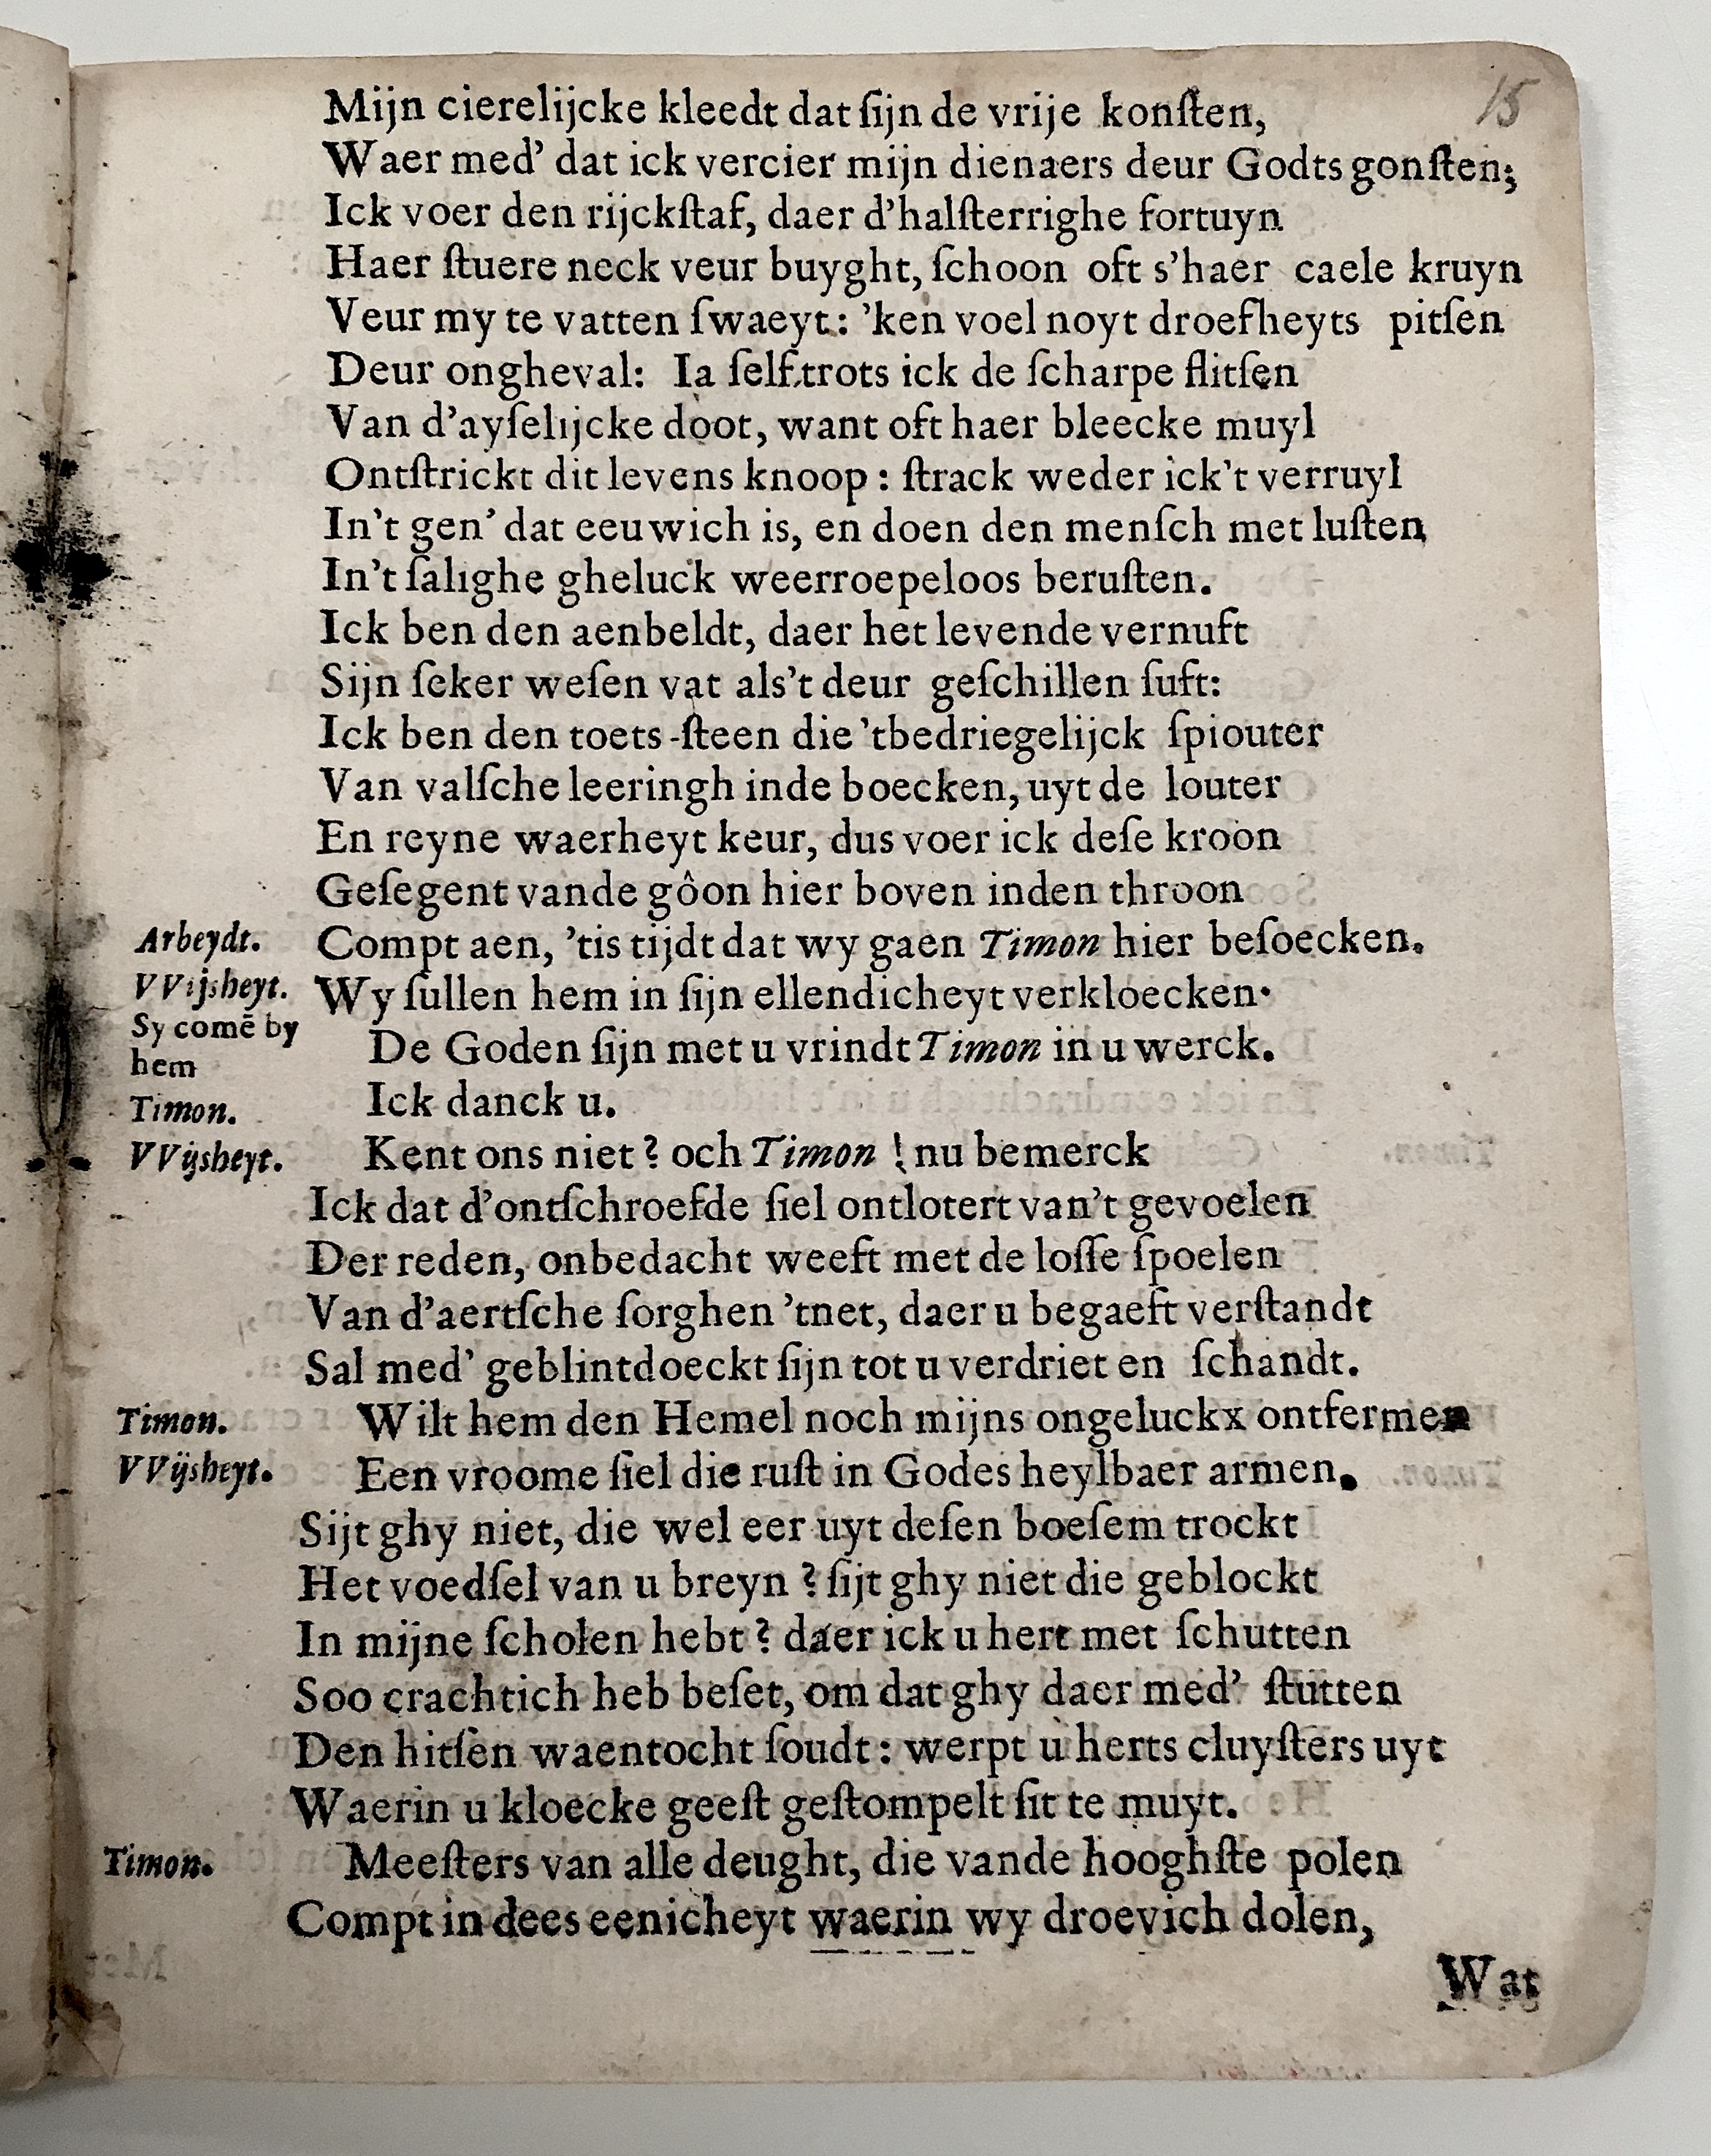 15
Mijn cierelijcke kleedt dat ſijn de vrije konſten,
Waer med’ dat ick vercier mijn dienaers deur Godts gonſten;
Ick voer den rijckſtaf, daer d’halſterrighe fortuyn
Haer ſtuere neck veur buyght, ſchoon oft s’haer caele kruyn
Veur my te vatten ſwaeyt: ’ken voel noyt droefheyts pitſen
Deur ongheval: Ia ſelf trots ick de ſcharpe flitſen
Van d’ayſelijcke doot, want oft haer bleecke muyl
Ontſtrickt dit levens knoop: ſtrack weder ick’t verruyl
In’t gen’ dat eeuwich is, en doen den menſch met luſten
In’t ſalighe gheluck weerroepeloos beruſten.
Ick ben den aenbeldt, daer het levende vernuft
Sijn ſeker weſen vat als’t deur geſchillen ſuft:
Ick ben den toets-ſteen die ’tbedriegelijck ſpiouter
Van valſche leeringh inde boecken, uyt de louter
En reyne waerheyt keur, dus voer ick deſe kroon
Geſegent vande gôon hier boven inden throon
Arbeydt. Compt aen, ’tis tijdt dat wy gaen Timon hier beſoecken.
VVijsheyt. Wy ſullen hem in ſijn ellendicheyt verkloecken·
Sy comē by
hem
De Goden ſijn met u vrindt Timon in u werck.
Timon. Ick danck u.
VVijsheyt. Kent ons niet? och Timon! nu bemerck
Ick dat d’ontſchroefde ſiel ontlotert van’t gevoelen
Der reden, onbedacht weeft met de loſſe ſpoelen
Van d’aertſche ſorghen ’tnet, daer u begaeft verſtandt
Sal med’ geblintdoeckt ſijn tot u verdriet en ſchandt.
Timon. Wilt hem den Hemel noch mijns ongeluckx ontfermen
VVijsheyt. Een vroome ſiel die ruſt in Godes heylbaer armen.
Sijt ghy niet, die wel eer uyt deſen boeſem trockt
Het voedſel van u breyn? ſijt ghy niet die geblockt
In mijne ſcholen hebt? daer ick u hert met ſchutten
Soo crachtich heb beſet, om dat ghy daer med’ ſtutten
Den hitſen waentocht ſoudt: werpt u herts cluyſters uyt
Waerin u kloecke geeſt geſtompelt ſit te muyt.
Timon. Meeſters van alle deught, die vande hooghſte polen
Compt in dees eenicheyt waerin wy droevich dolen,
Wat